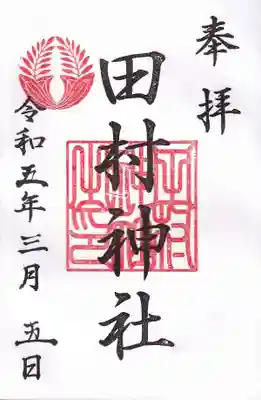 奉拝
田村神社
令和五年三月五日